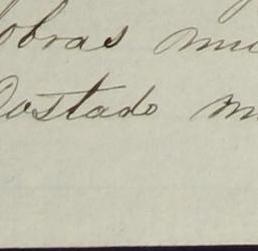 obras mu
Costado m